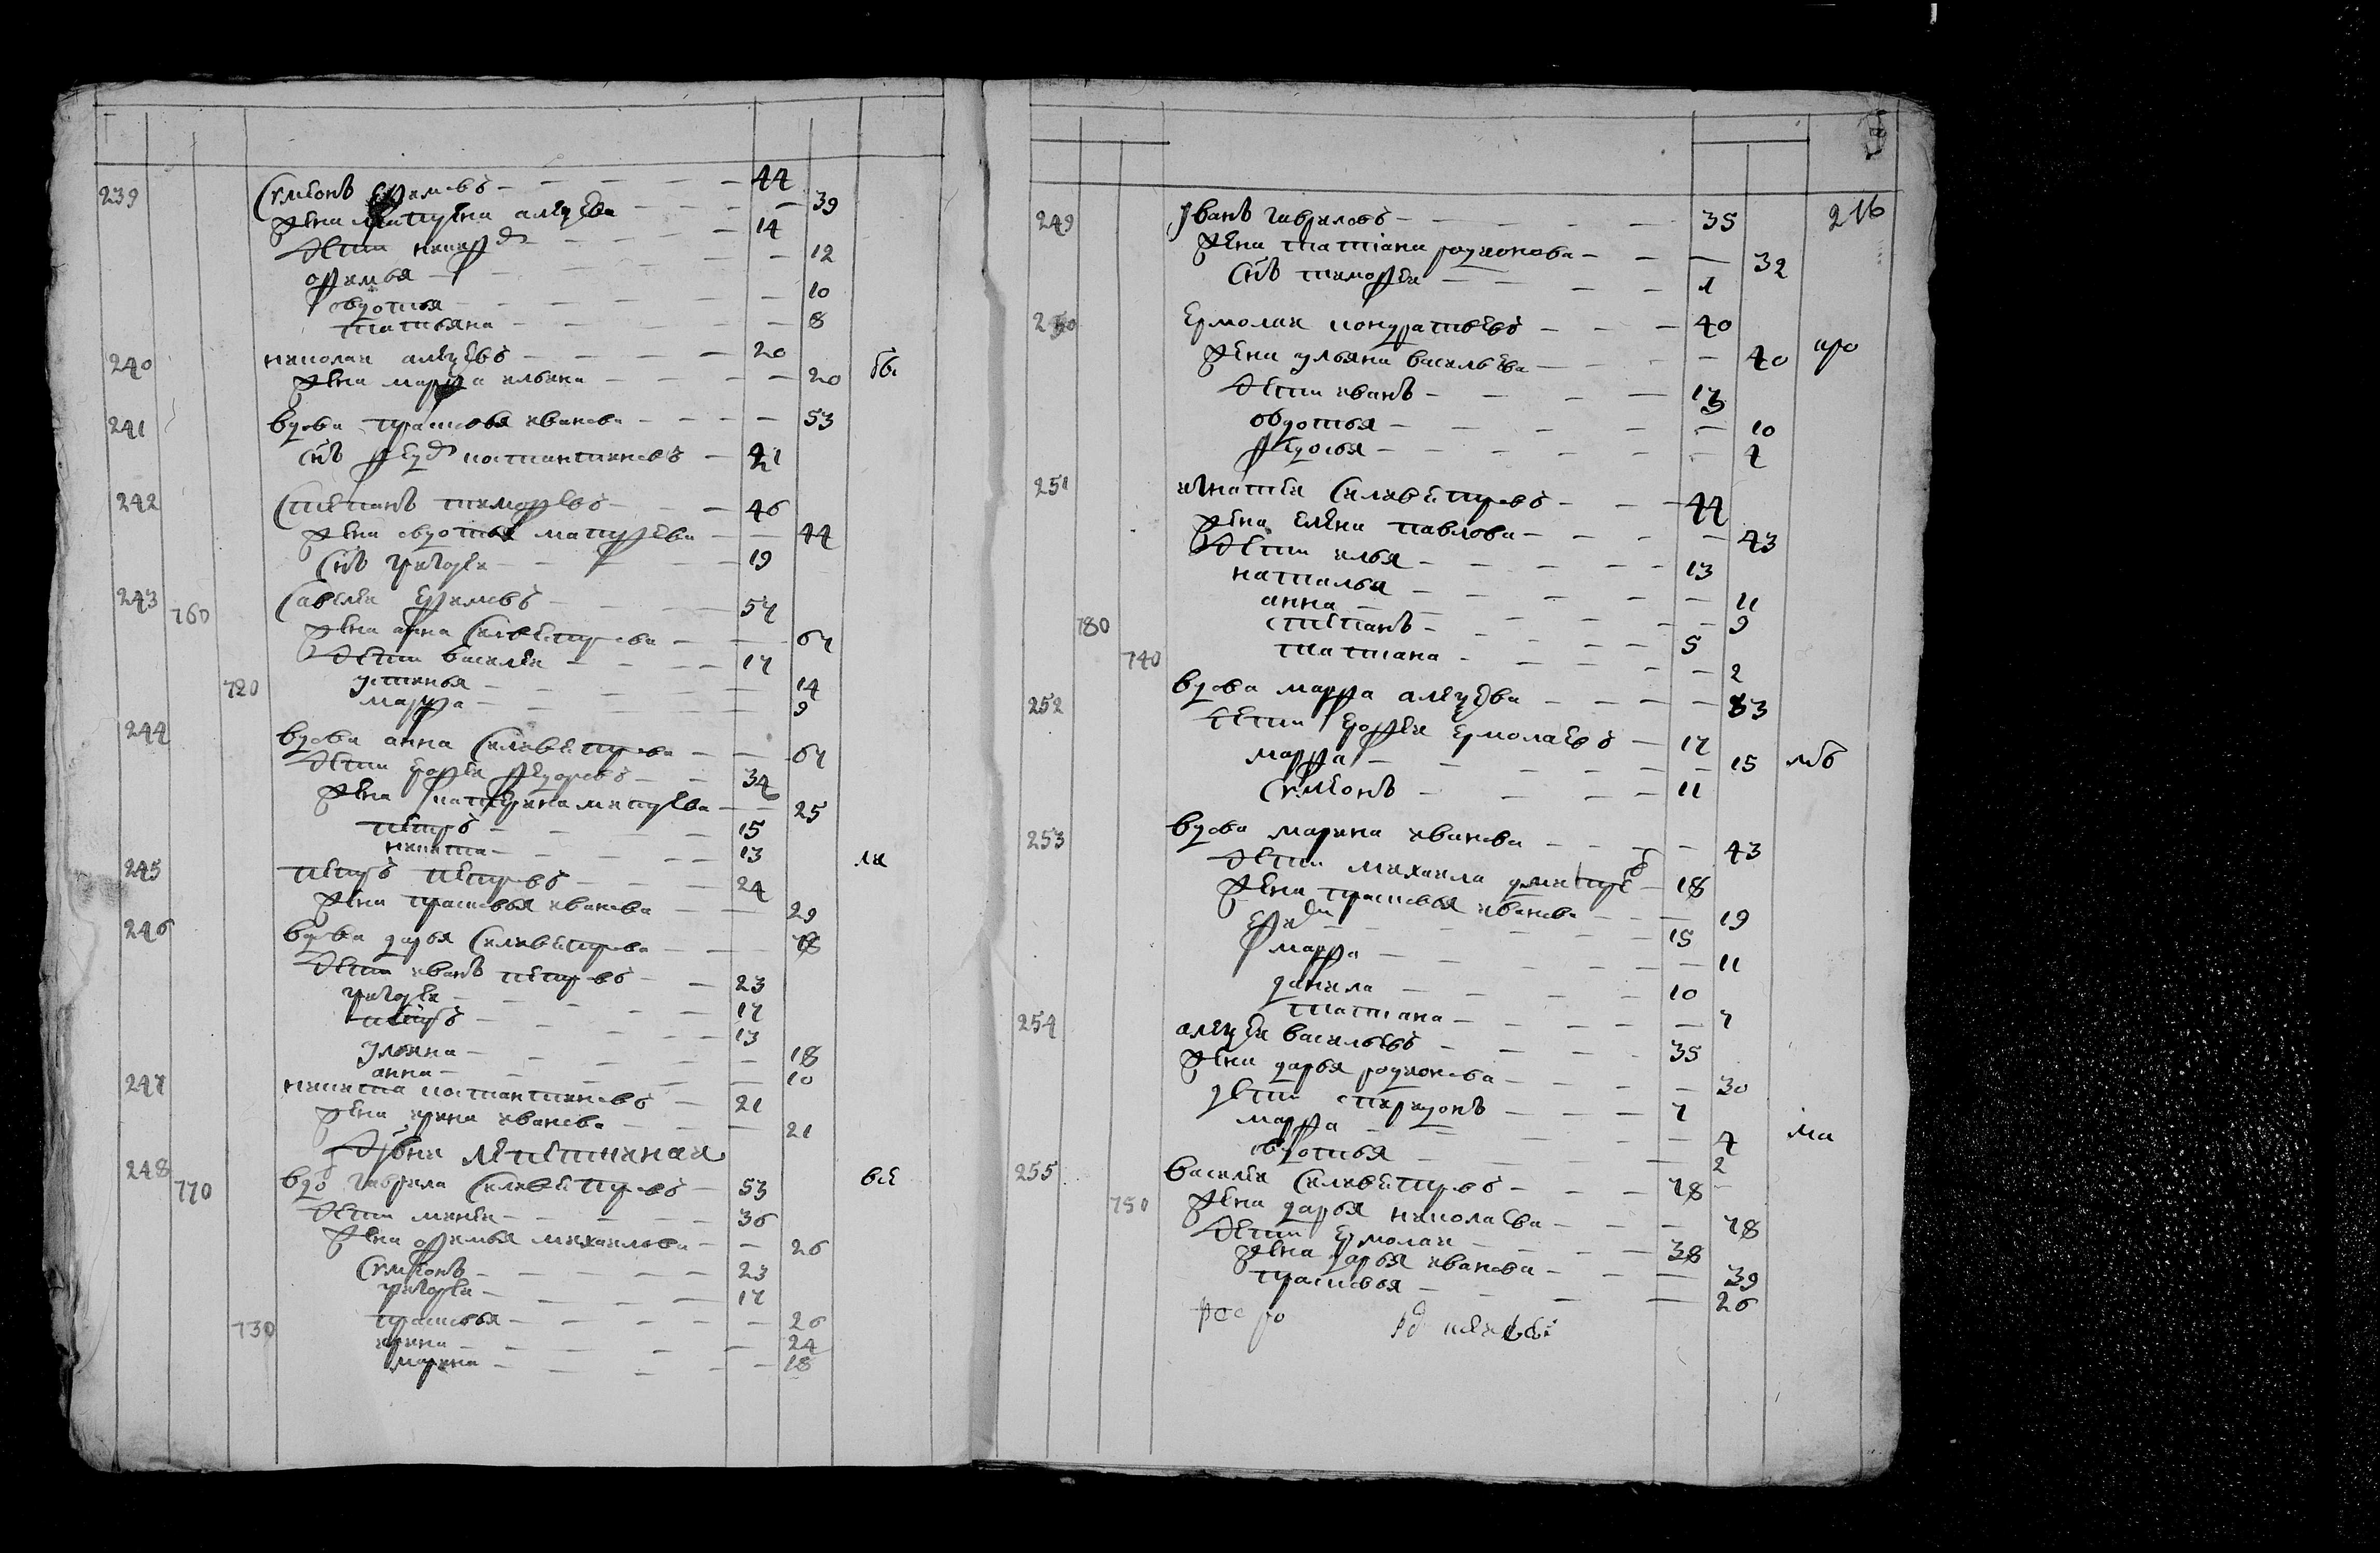 239 Симеонъ Ефимовъ 44
Жена Матрена алеѯѣева 39
Дети никифоръ 14
офимья 12
овдотья 10
татьяна 8
240 николаи алеѯѣевъ 20
Жена марфа ильина 20
241 вдова прасковья иванова 53
Снъ федоръ костантиновъ 21
242 Степанъ тимофѣевъ 46
Жена овдотья матвѣева 44
Снъ григореи 19
243 760 Савелеи Ефимовъ 57
Жена анна Селивестрова 67
Дети василеи 17
устинья 14
720 марфа 9
244 вдова анна Селивестрова 67
Дети Ерофеи федоровъ 34
Жена катерина матвѣева 25
петръ 15
никита 13
245 петръ петровъ 24
Жена прасковья иванова 29
246 вдова дарья Селивестрова
Дети иванъ петровъ 23
григореи 17
петръ 13
ульяна 18
анна 10
247 никита костантиновъ 21
Жена ирина иванова 21
248 770 вдовъ гаврила Селивестровъ 53
Дети минеи 36
Жена офимья михаилова 26
Симионъ 23
григореи 17
прасковья 26
730 ирина 24
марина 18
216
249 Иванъ гавриловъ 35
Жена татиана родионова 32
Снъ тимофеи 1
250 Ермолаи кондратьевъ 40
Жена ульяна васильева 40
Дети иванъ 13
овдотья 10
федосья 4
251 игнатеи Селивестровъ 44
Жена елена павлова 43
Дети илья 13
наталья 11
анна 9
780 степанъ 5
740 татиана 2
252 вдова марфа алеѯѣева 53
Дети Ерофеи Ермолаевъ 17
марфа 15
Симеонъ 11
253 вдова марина иванова 43
Дети михаила дмитревъ 18
Жена прасковья иванова 19
15
марфа 11
данила 10
татиана 7
254 алеѯѣи васильевъ 35
Жена дарья родионова 30
дети спиридонъ 7
марфа 4
овдотья 2
255 василеи Селивестровъ 78
750 Жена дарья николаева 78
Дети Ермолаи 38
Жена дарья иванова 39
прасковья 26